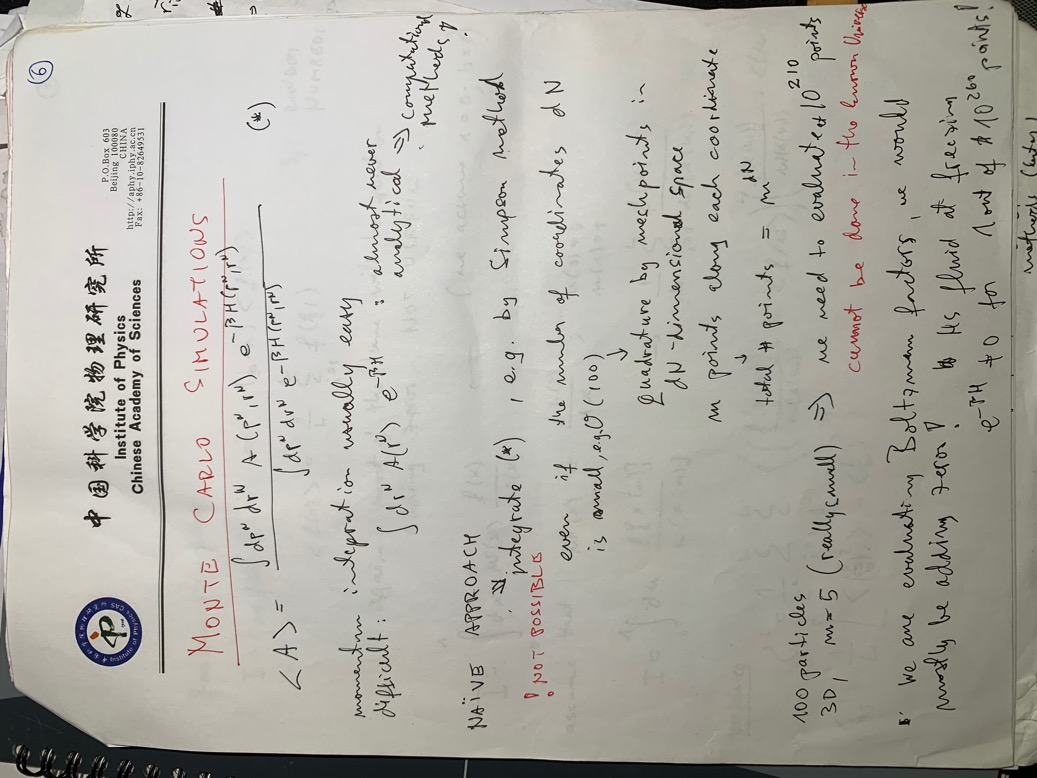 6
中国科学院物理研究所
Institute of Physics
Chinese Academy of Sciences
P.O.Box 603
Beijing 100080
CHINA
http://aphy.iphy.ac.cn
Fax: +86-10-82649531
MONTE CARLO SIMULATIONS
<A> = ∫dp^N dr^N A(p^N, r^N) e^{-βH(p^N, r^N)} / ∫dp^N dr^N e^{-βH(p^N, r^N)} (*)
momentum integration usually easy
difficult: ∫dr^N A(r^N) e^{-βH} : almost never analytical ⇒ computational methods!
NAÏVE APPROACH
: integrate (*), e.g. by Simpson method
! NOT POSSIBLE
even if the number of coordinates dN
is small, e.g. O(100)
↓
Quadrature by mesh points in
dN-dimensional space
m points along each coordinate
↓
total # points = m^{dN}
100 particles
3D, m=5 (really small) ⇒ we need to evaluate # 10^{210} points
cannot be done in the known Universe
We are evaluating Boltzmann factors, we would
mostly be adding zeros! HS fluid at freezing
e^{-βH} ≠ 0 for 1 out of 10^{260} points!